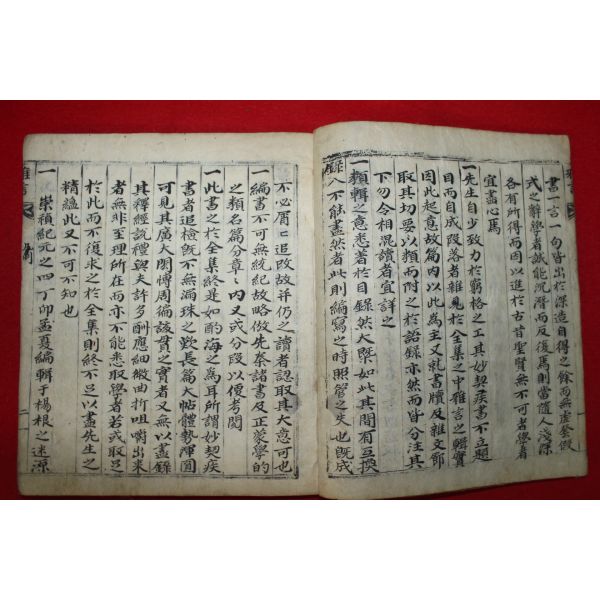 書一言一句皆出於深造自得之餘而無虛套假
式之辭學者誠能沉潛而反復焉則當隨人淺深
各有所得而因以進於古昔聖賢無不可者學者
宜盡心焉
一先生自少致力於窮格之工其妙契疾書不立題
目而自成段落者雜見於全集之中雜言之輯實
因此起意故篇內以此為主又就書牘及雜文部
取其切要以類而附之於語錄亦然而皆分注其
下勿令相混讀者宜詳之
一類輯之意悉著於目錄然大槩如此其間有互換
錄入不能盡然者此則編寫之時照管之失也旣成
不必屑〻追改故并仍之讀者認取其大意可也
一編書不可無統紀故略倣先秦諸書及正蒙學的
之類名篇分章〻內又或分段以便考閱
一此書之於全集終是如酌海之為耳所謂妙契疾
書者追檢旣不無漏珠之歎長篇大帖體勢渾圓
可見其廣大閎博周徧該貫之實者又無以盡錄
其釋經說禮與夫許多酬應細微曲折咀嚼出來
者無非至理所在而亦不能悉取學者若或取足
於此而不復求之於全集則終不足以盡先生之
精蘊此又不可不知也
一 崇禎紀元之四丁卯孟夏編輯于楊根之迷源
雅言
二